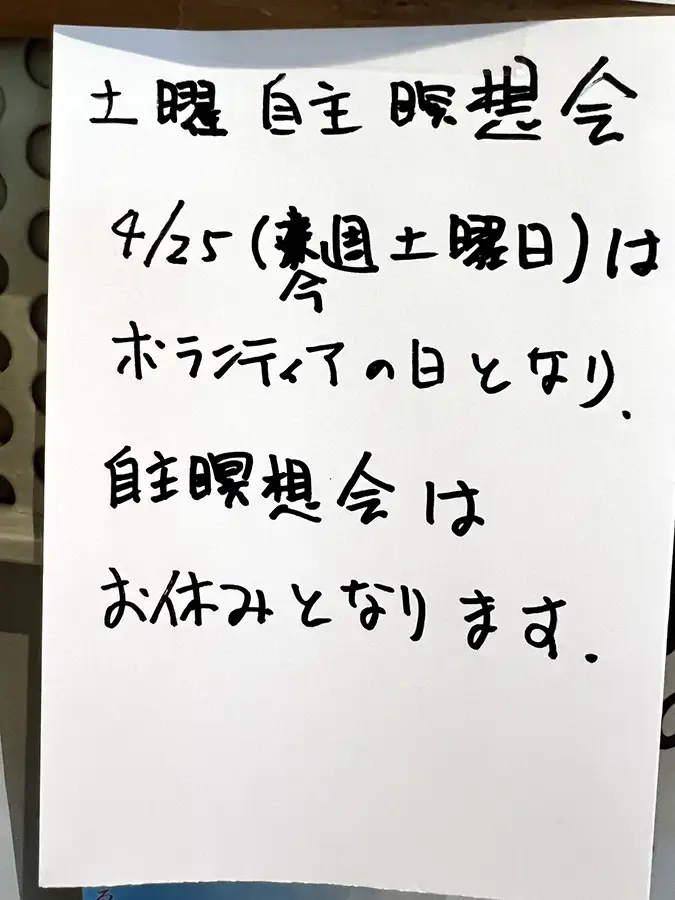 土曜自主瞑想会
4/25(今週土曜日)は
ボランティアの日となり.
自主瞑想会は
お休みとなります.